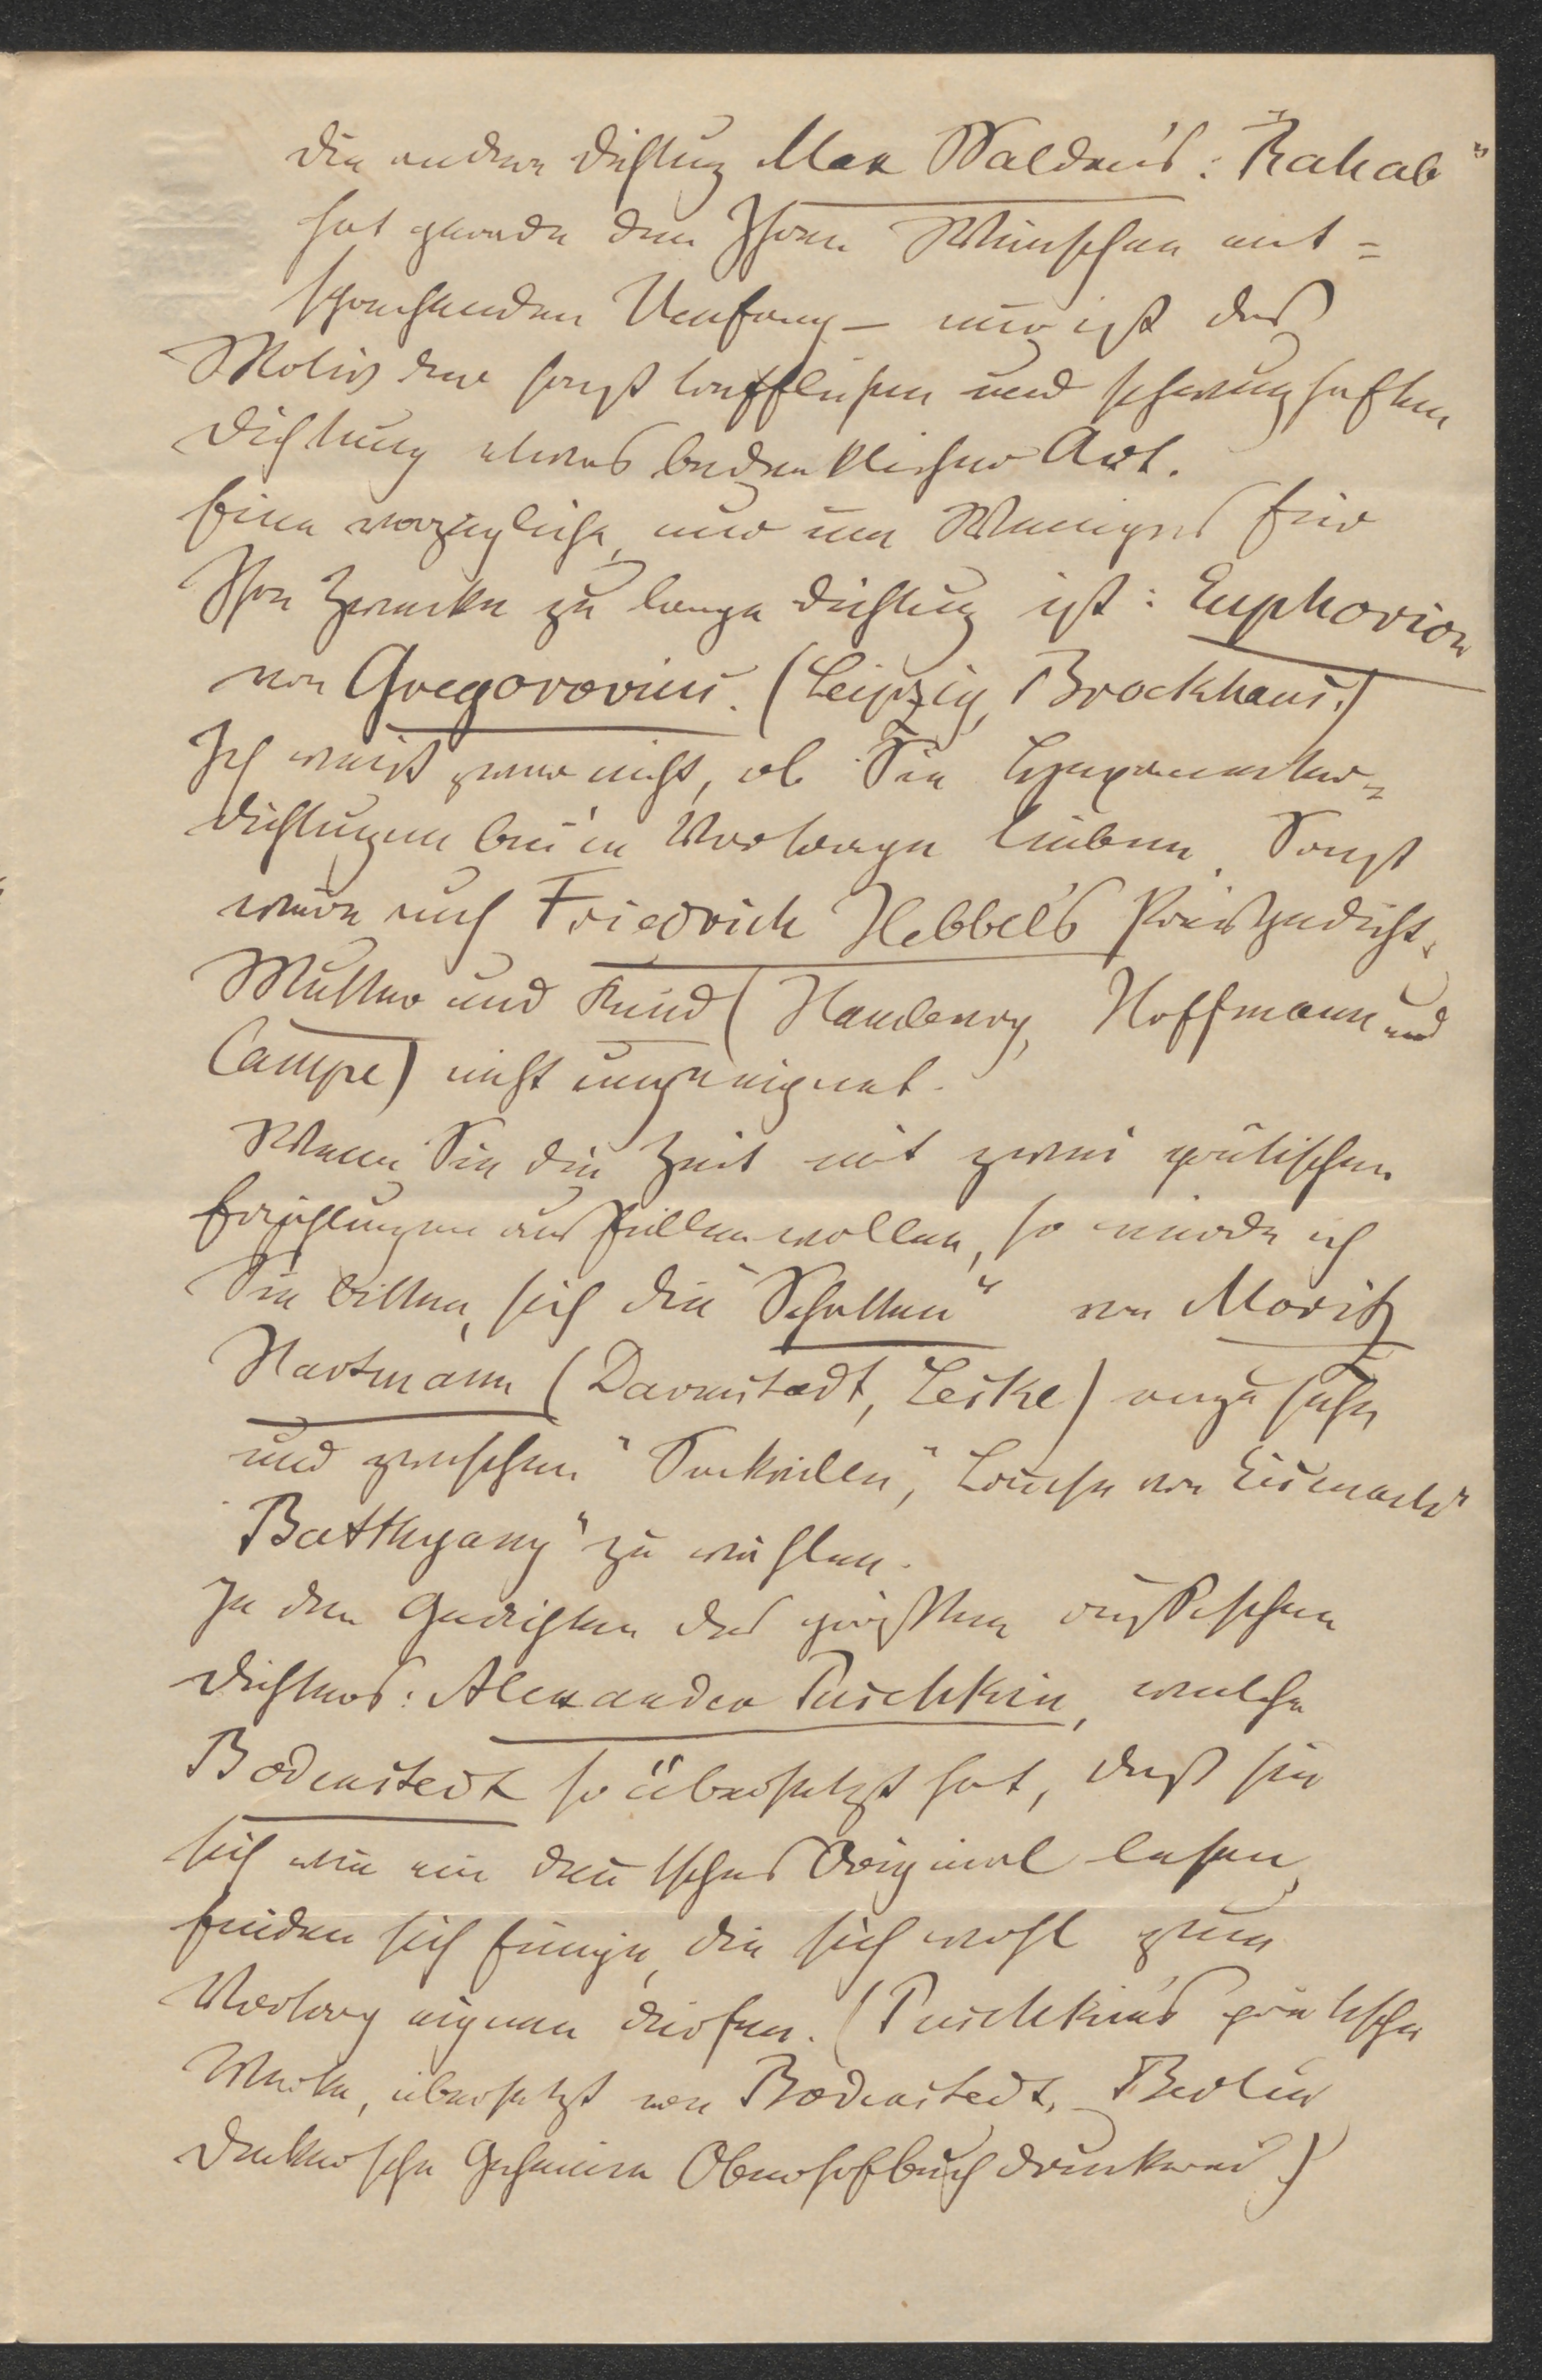 Die andere Dichtung Max Waldau's: "Rahab"
hat gerade den Ihren Wünschen ent=
sprechenden Umfang – nur ist das
Motiv der sonst trefflichen und schwunghaften
Dichtung etwas bedenklicher Art.
Eine vorzügliche, nur um Weniges für
Ihre Zwecke zu lange Dichtung ist: Euphorion
von Gregorovius. (Leipzig, Brockhaus.)
Ich weiß zwar nicht, ob Sie Hexameter=
dichtungen bei'm Vortrage lieben. Sonst
wäre auch Friedrich Hebbel's Preisgedicht,
Mutter und Kind (Hamburg, Hoffmann und
Campe) nicht ungeeignet.
Wenn Sie die Zeit mit zwei poetischen
Erzählungen ausfüllen wollen, so würde ich
Sie bitten, sich die "Schatten" von Moritz
Hartmann (Darmstadt, Leske) anzusehn
und zwischen "Sackville", Louise von Eisenach"
Batthyany" zu wählen.
In den Gedichten des größten russischen
Dichters: Alexander Puschkin, welche
Bodenstedt so übersetzt hat, daß sie
sich wie ein deutsches Original lesen,
finden sich Einige, die sich wohl zum
Vortrag eignen dürften. (Puschkin's poetische
Werke, übersetzt von Bodenstedt, Berlin
Deckersche Geheime Oberhofbuchdruckerei.)